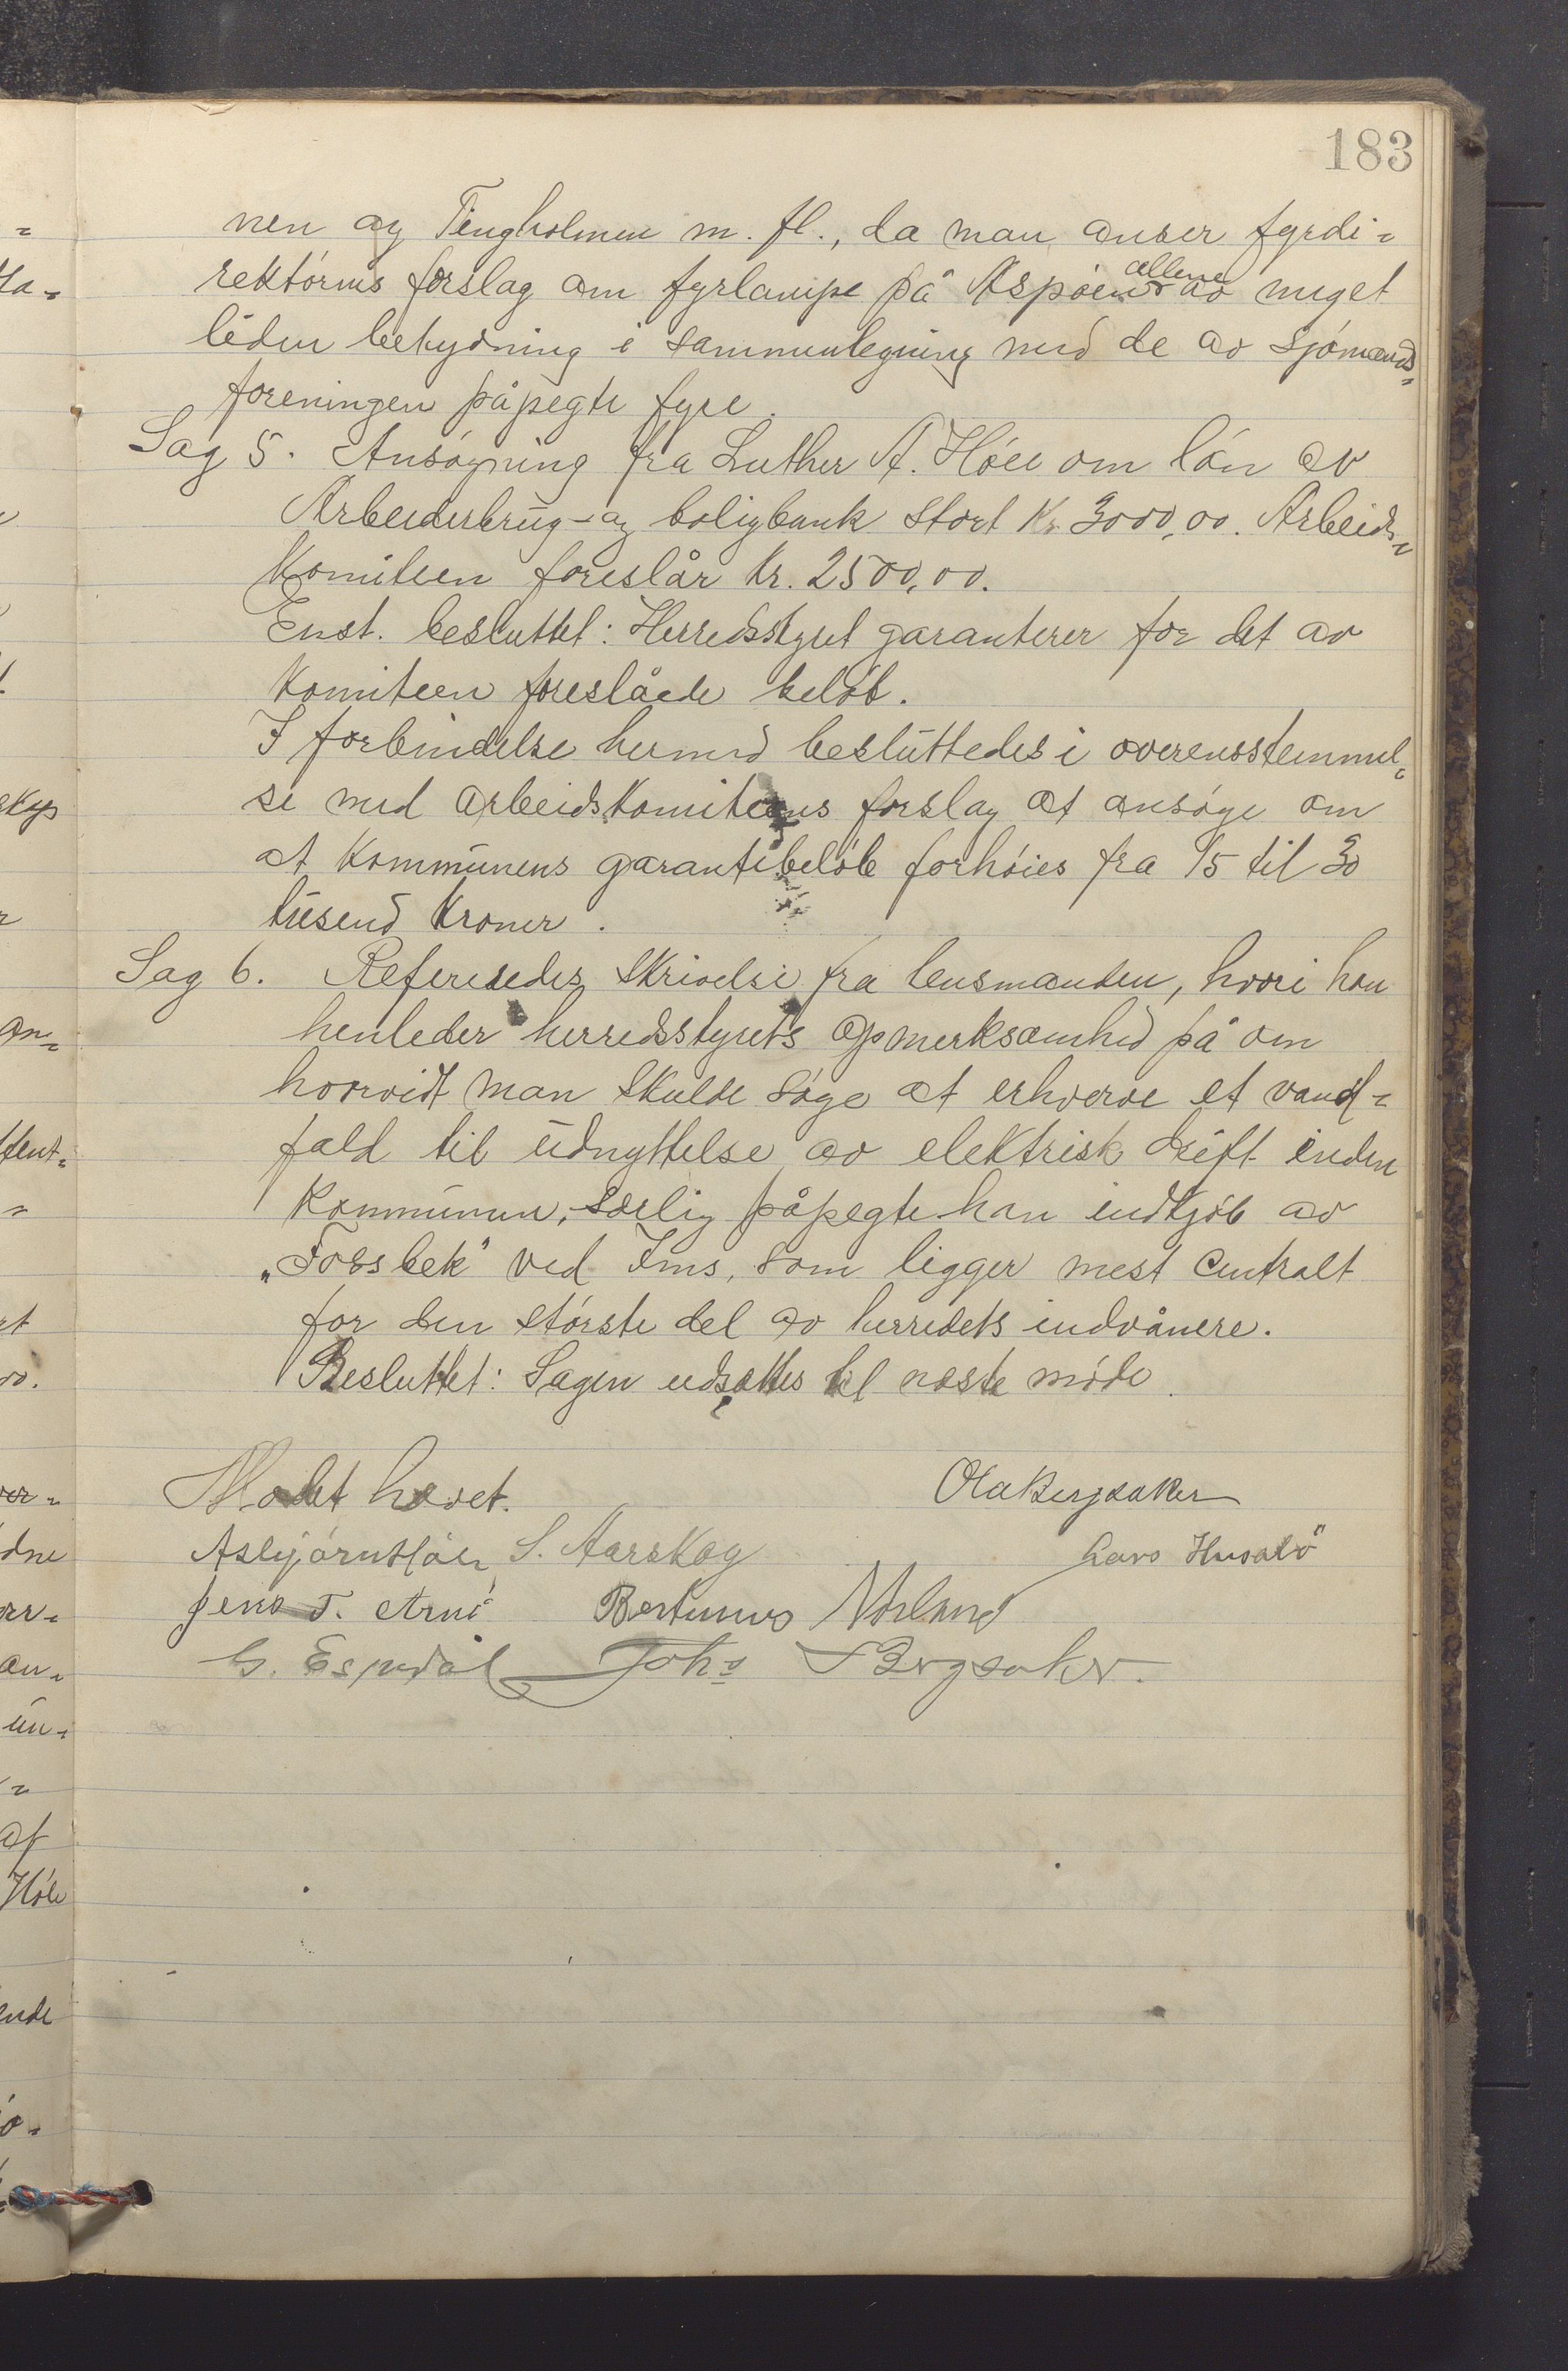 183
nen og Tingholmen m. fl., da man anser fyrdi-
rektörens forslag om fyrlampe på Aspöen allene av meget
liden betydning i sammenlegning med de av sjömands-
foreningen påpegte fyre.
Sag 5. Ansögning fra Luther A. Höle om lån av
Arbeiderbrug- og boligbank stort Kr. 3000,00. Arbeids-
Komiteen foreslår Kr. 2500,00.
Enst. besluttet: Herredsstyret garanterer for det av
Komiteen foreslåede belöb.
I forbindelse hermed besluttedes i overensstemmel-
se med arbeidskomiteens forslag at ansöge om
at Kommunens garantibelöb forhöies fra 15 til 30
tusend Kroner.
Sag 6. Refereredes skrivelse fra lensmanden, hvori han
henleder herredsstyrets opmerksomhed på om
hvorvidt man skulde söge at erhverve et vand-
fald til udnyttelse av elektrisk drift inden
Kommunen, særlig påpegte han indkjöb av
"Fossbek" ved Ims, som ligger mest centralt
for den störste del av herredets indvånere.
Besluttet: Sagen udsættes til næste möde.
Mödet hævet. Ola Bergsaker
Asbjörn Höle S. Aarskog Lars Husabö
Jens T. Arni Bertinius Norland
G. Espedal Johs Bergsaker.